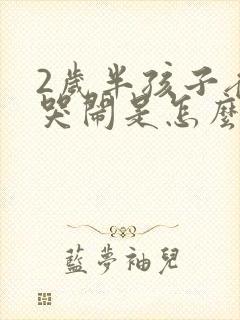 2歲半孩子
哭鬧是怎麼
藍夢袖兒